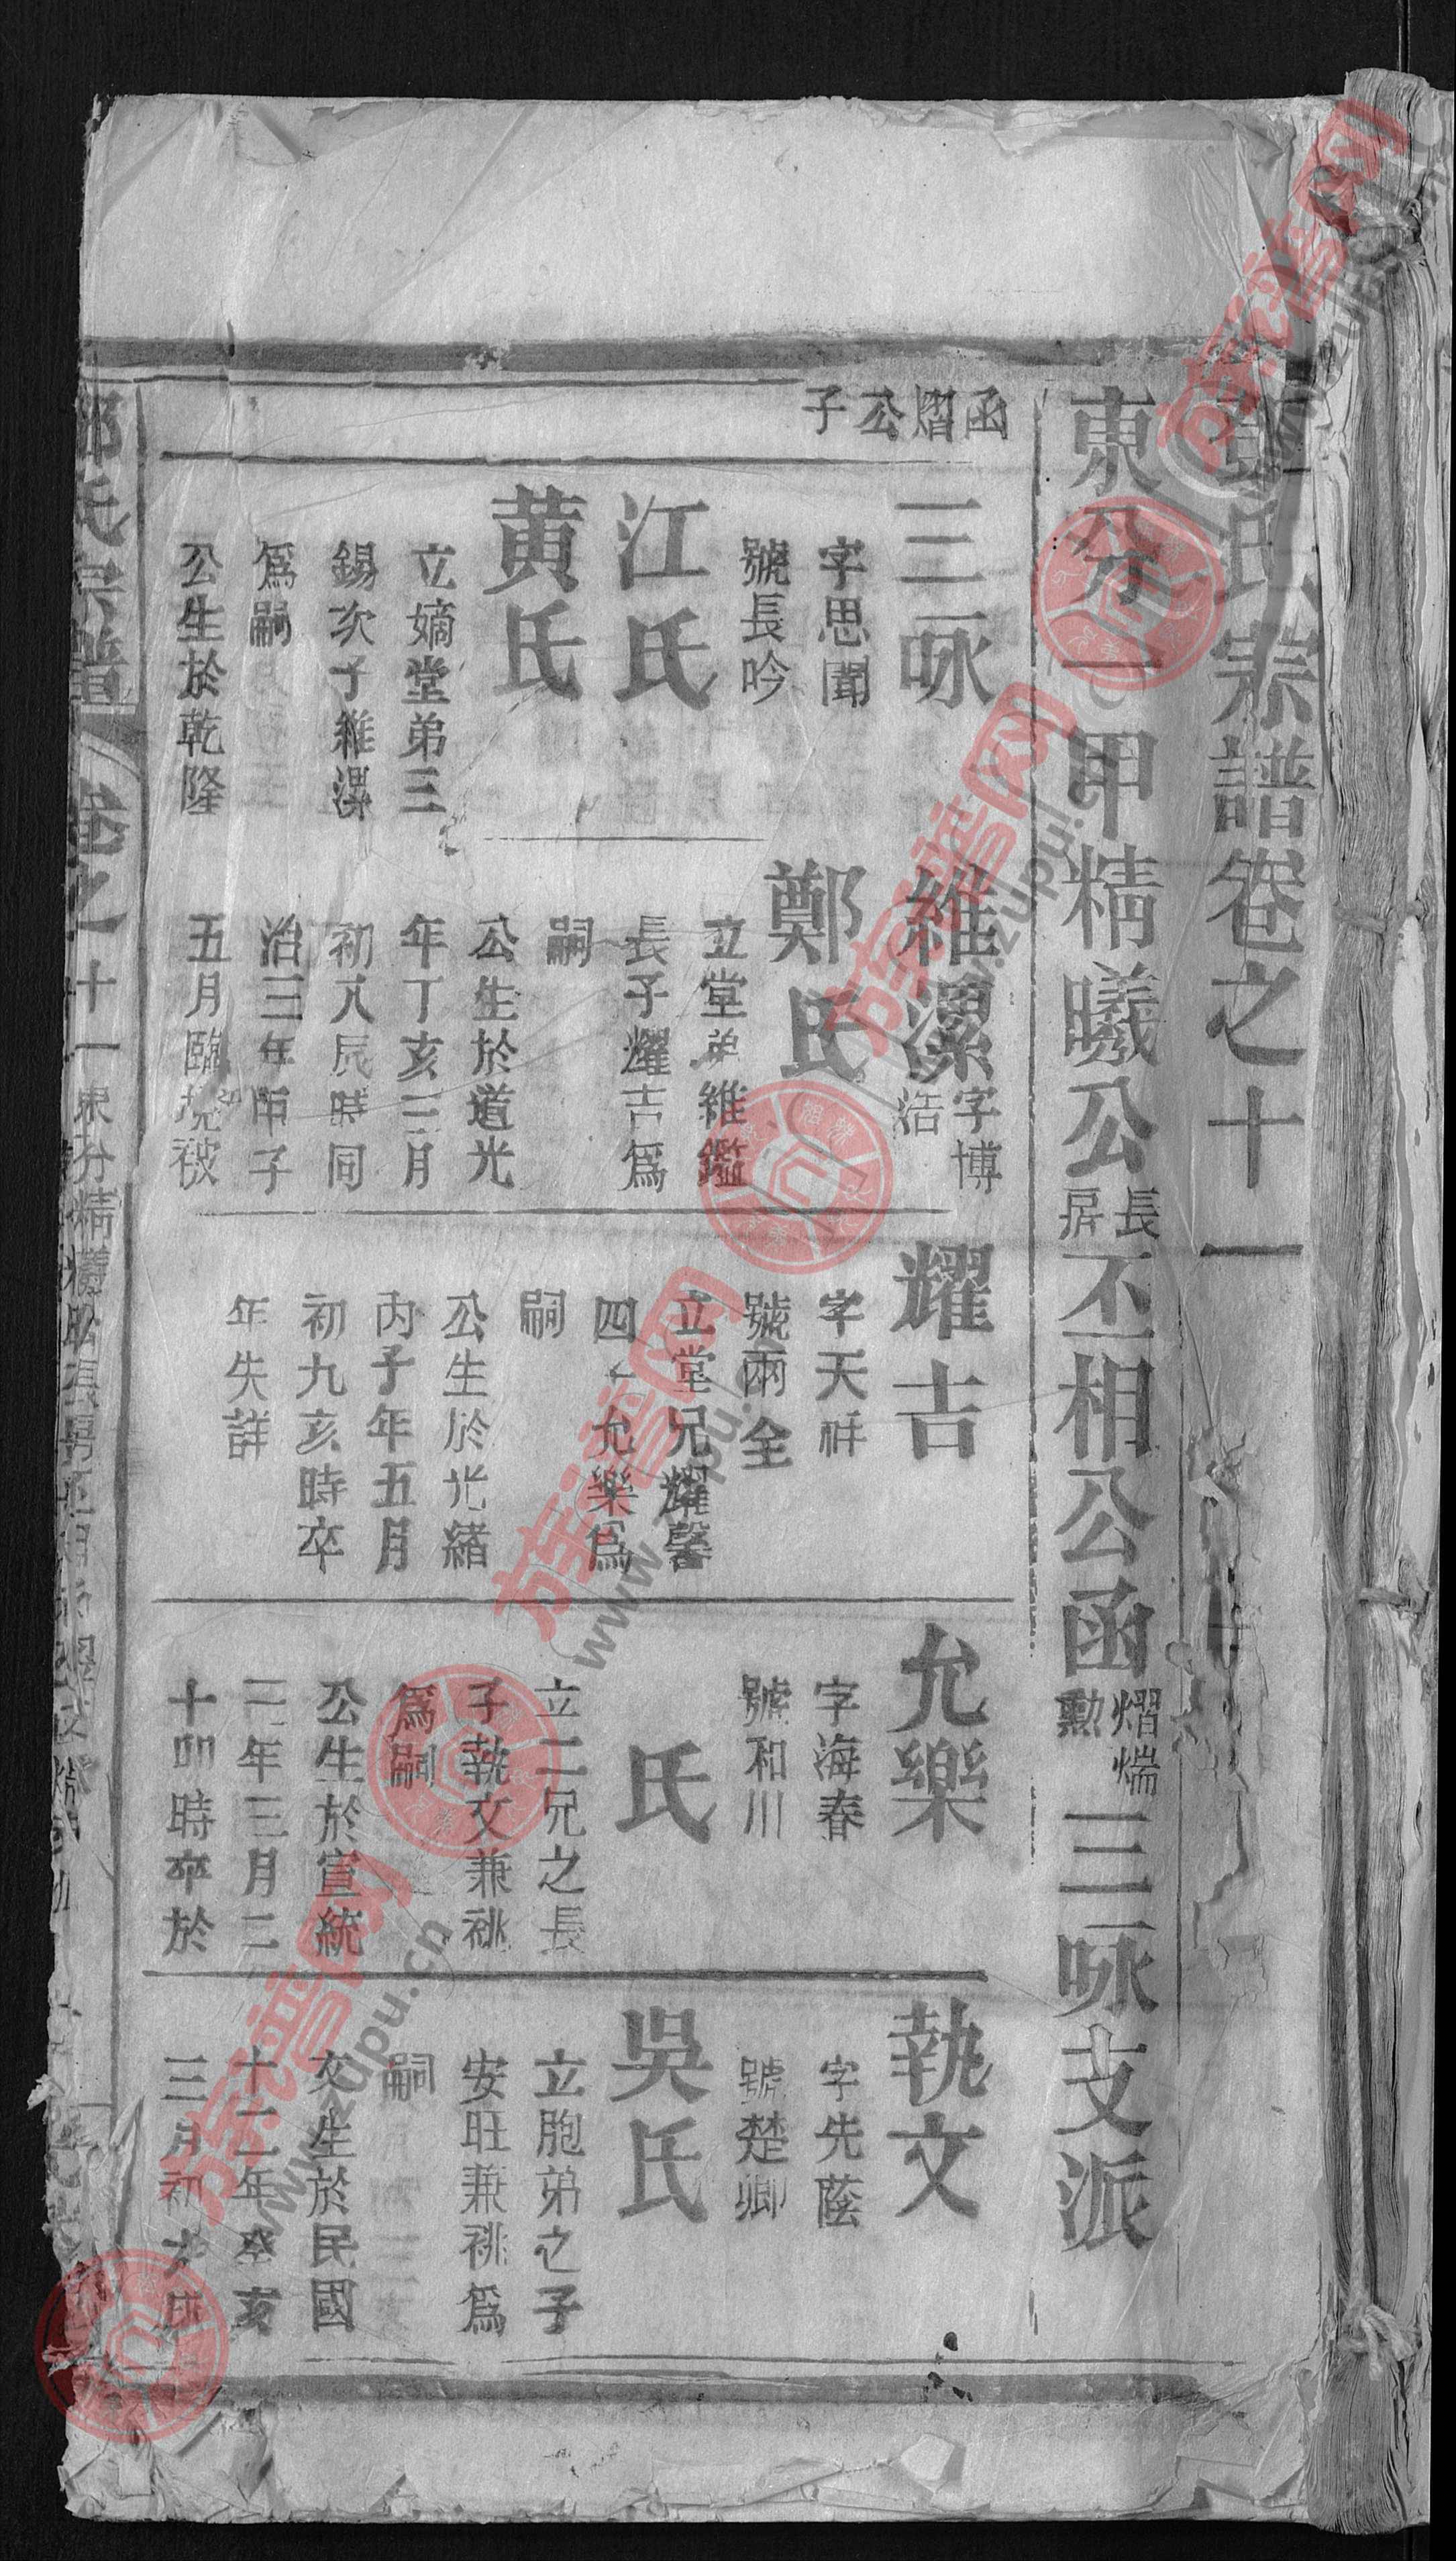 氏宗譜卷之十一
東分一甲精曦公長房丕相公函熠煓勲三咏支派
函熠公子
三咏
字思聞
號長吟
江氏
黄氏
立嫡堂弟三
錫次子維漯
爲嗣
公生於乾隆
維漯字博浩
鄭氏
立堂弟維鑑
長子耀吉爲
嗣
公生於道光
年丁亥三月
初八辰時同
治三年甲子
五月臨境被
耀吉
字天祥
號兩全
立堂兄耀馨
四子允樂爲
嗣
公生於光緒
丙子年五月
初九亥時卒
年失詳
允樂
字海春
號和川
氏
立二兄之長
子執文兼祧
爲嗣
公生於宣統
二年三月二
十卯時卒於
執文
字先蔭
號楚卿
吳氏
立胞弟之子
安旺兼祧爲
嗣
文生於民國
十二年癸亥
三月初
氏宗譜 卷之十一 東分精曦
古籍譜网
www.zupu.cn